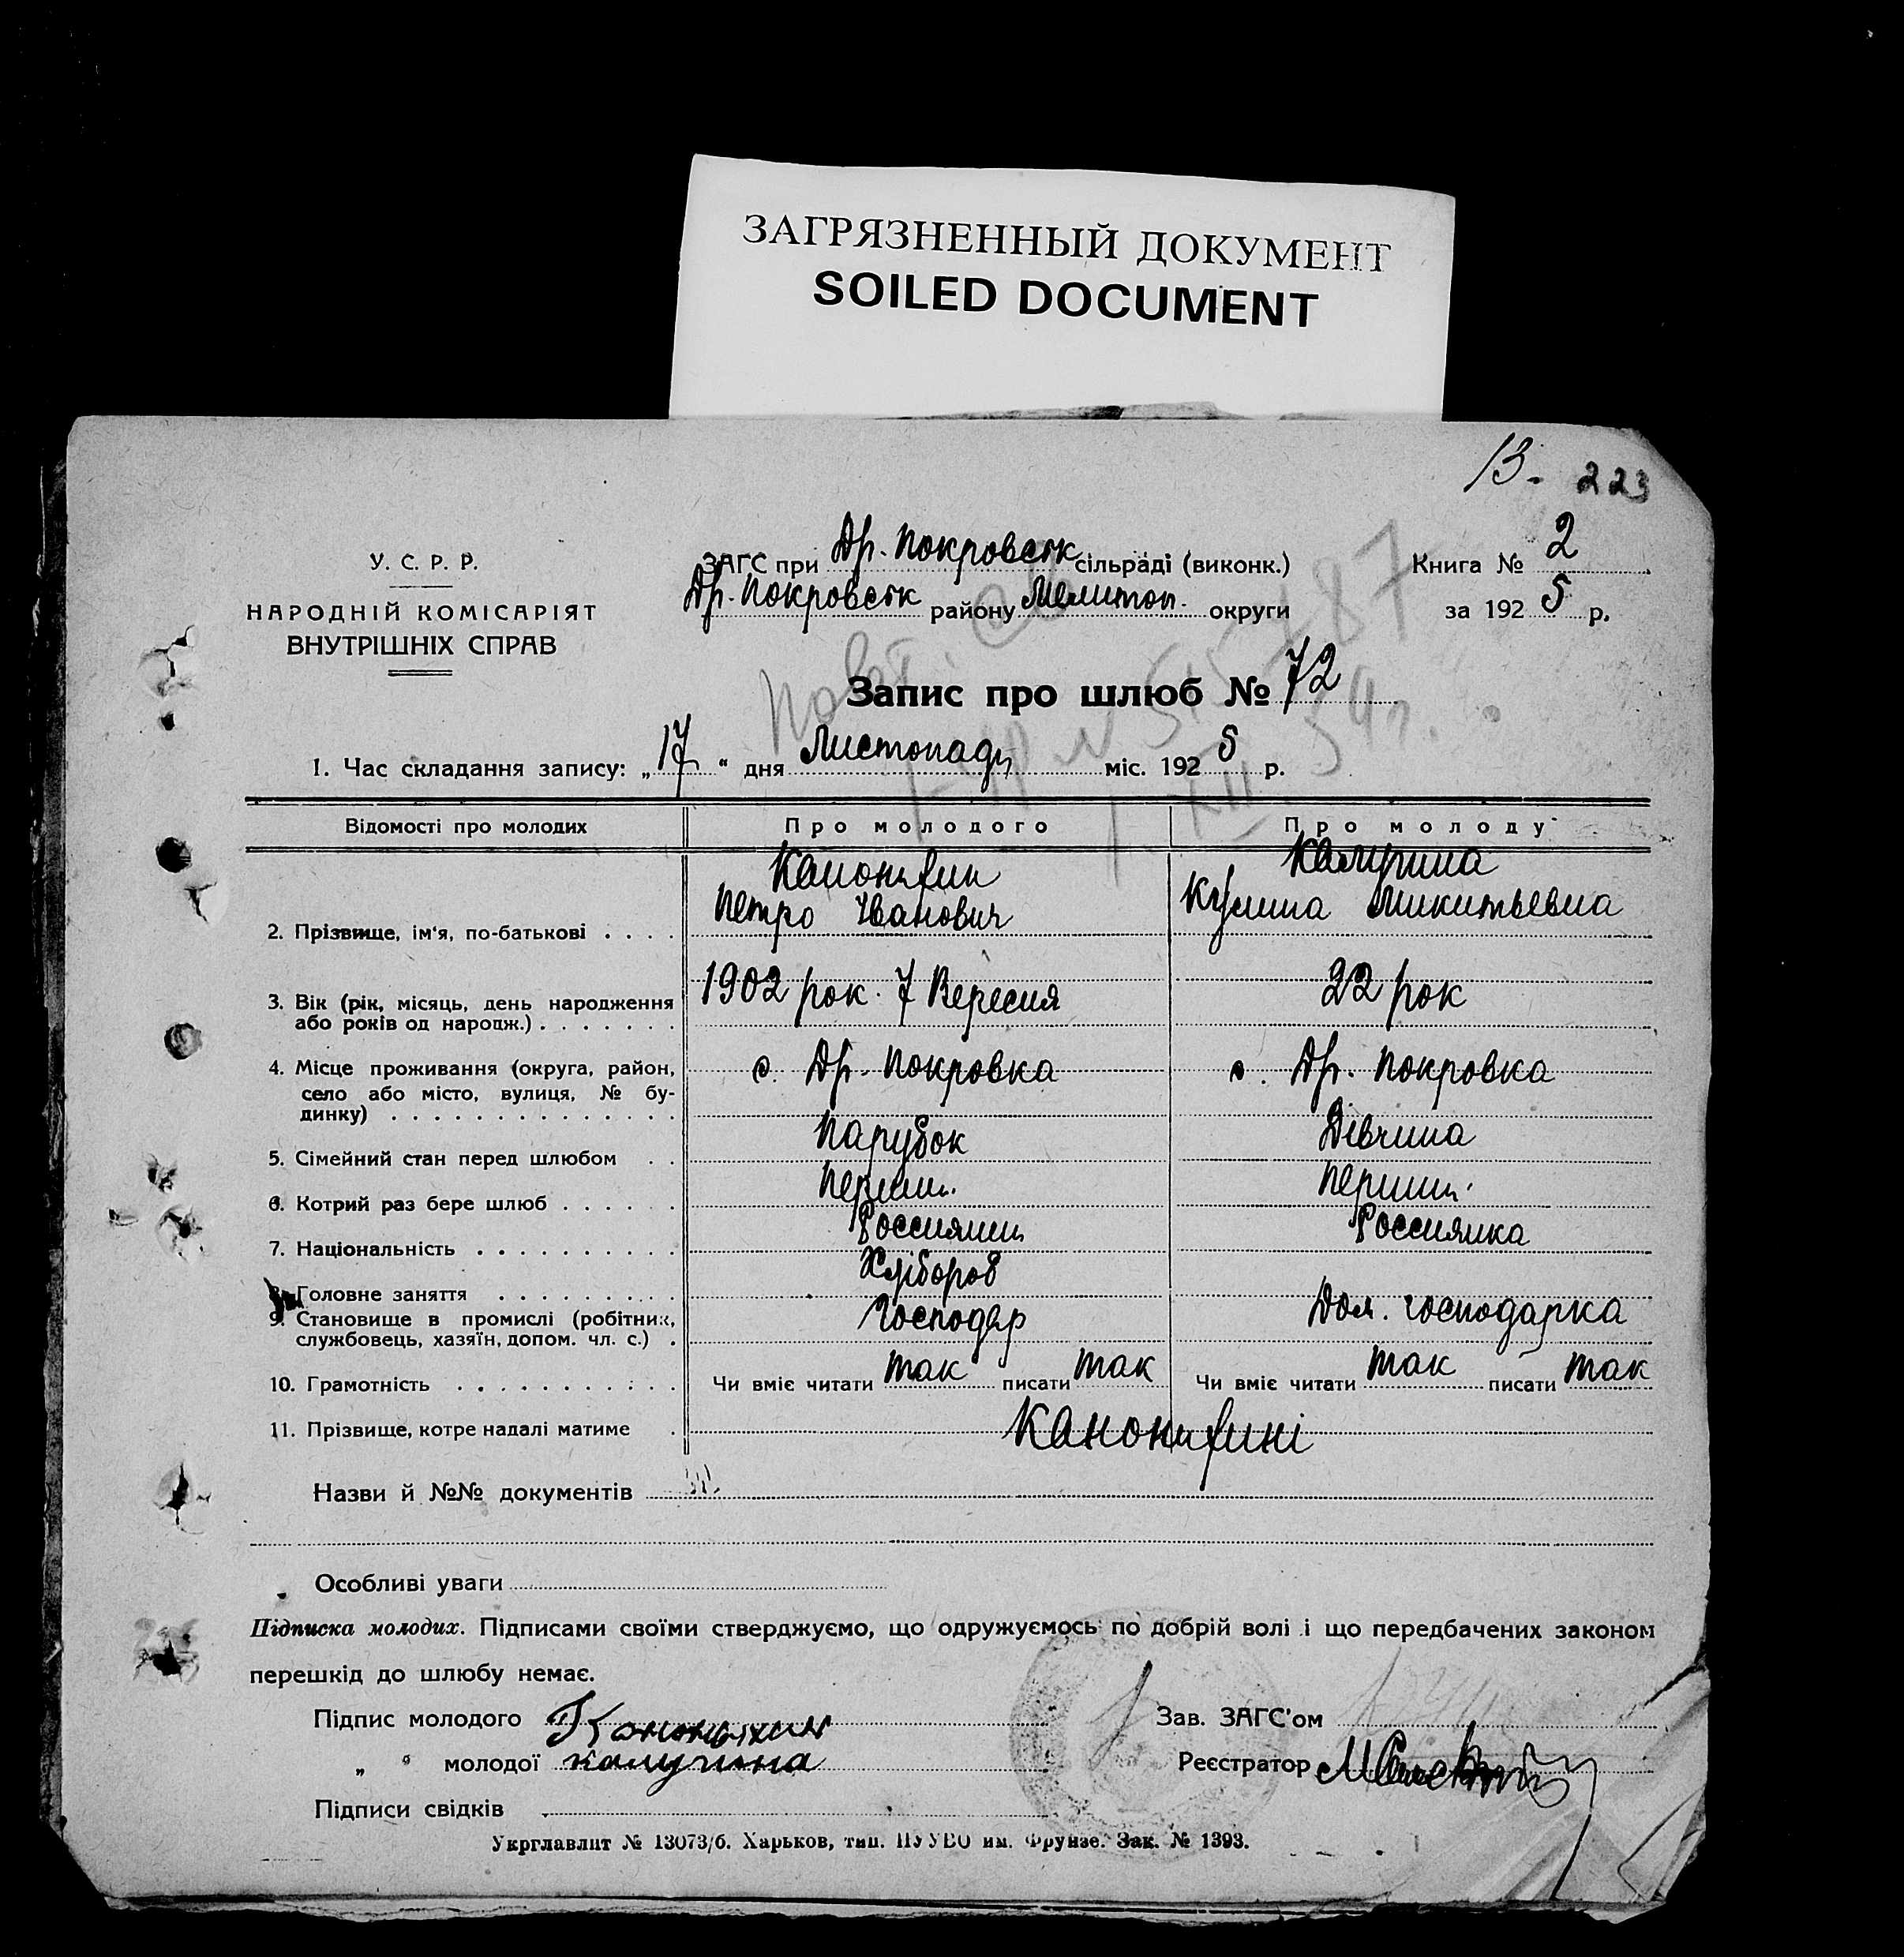 ЗАГРЯЗНЕННЫЙ ДОКУМЕНТ
SOILED DOCUMENT
13. 223
У. С. Р. Р.
НАРОДНІЙ КОМІСАРІЯТ
ВНУТРІШНІХ СПРАВ
ЗАГС при Др. Покровськ сільраді (виконк.)
Др. Покровськ району Мелитоп. округи
Книга № 2
за 1925 р.
Запис про шлюб № 72
1. Час складання запису: „17“ дня Листопаду міс. 1925 р.
Відомості про молодих Про молодого Про молоду
2. Прізвище, ім'я, по-батькові . . . . Канонихин Петро Іванович Калугина Микитьевна
3. Вік (рік, місяць, день народження 1902 рок. 7 Вересня 22 рок
або років од народж.) . . . . . . .
4. Місце проживання (округа, район, с. Др. Покровка с. Др. Покровка
село або місто, вулиця, № бу-
динку) . . . . . . . . . . . . . .
5. Сімейний стан перед шлюбом . . Парубок Дівчина
6. Котрий раз бере шлюб . . . . . . Перший. Перший.
7. Національність . . . . . . . . . . Россиянин Россиянка
8. Головне заняття . . . . . . . . . Хлібороб
9. Становище в промислі (робітник, Господар Дом. господарка
службовець, хазяїн, допом. чл. с.) .
10. Грамотність . . . . . . . . . . . Чи вміє читати так писати так Чи вміє читати так писати так
11. Прізвище, котре надалі матиме . Канонихині
Назви й №№ документів
Особливі уваги
Підписка молодих. Підписами своїми стверджуємо, що одружуємось по добрій волі і що передбачених законом
перешкід до шлюбу немає.
Підпис молодого Канонихин Зав. ЗАГС'ом
„ “ молодої калугина Реєстратор
Підписи свідків
Укрглавлит № 13073/б. Харьков, тип. ПУУВО им. Фрунзе. Зак. № 1393.